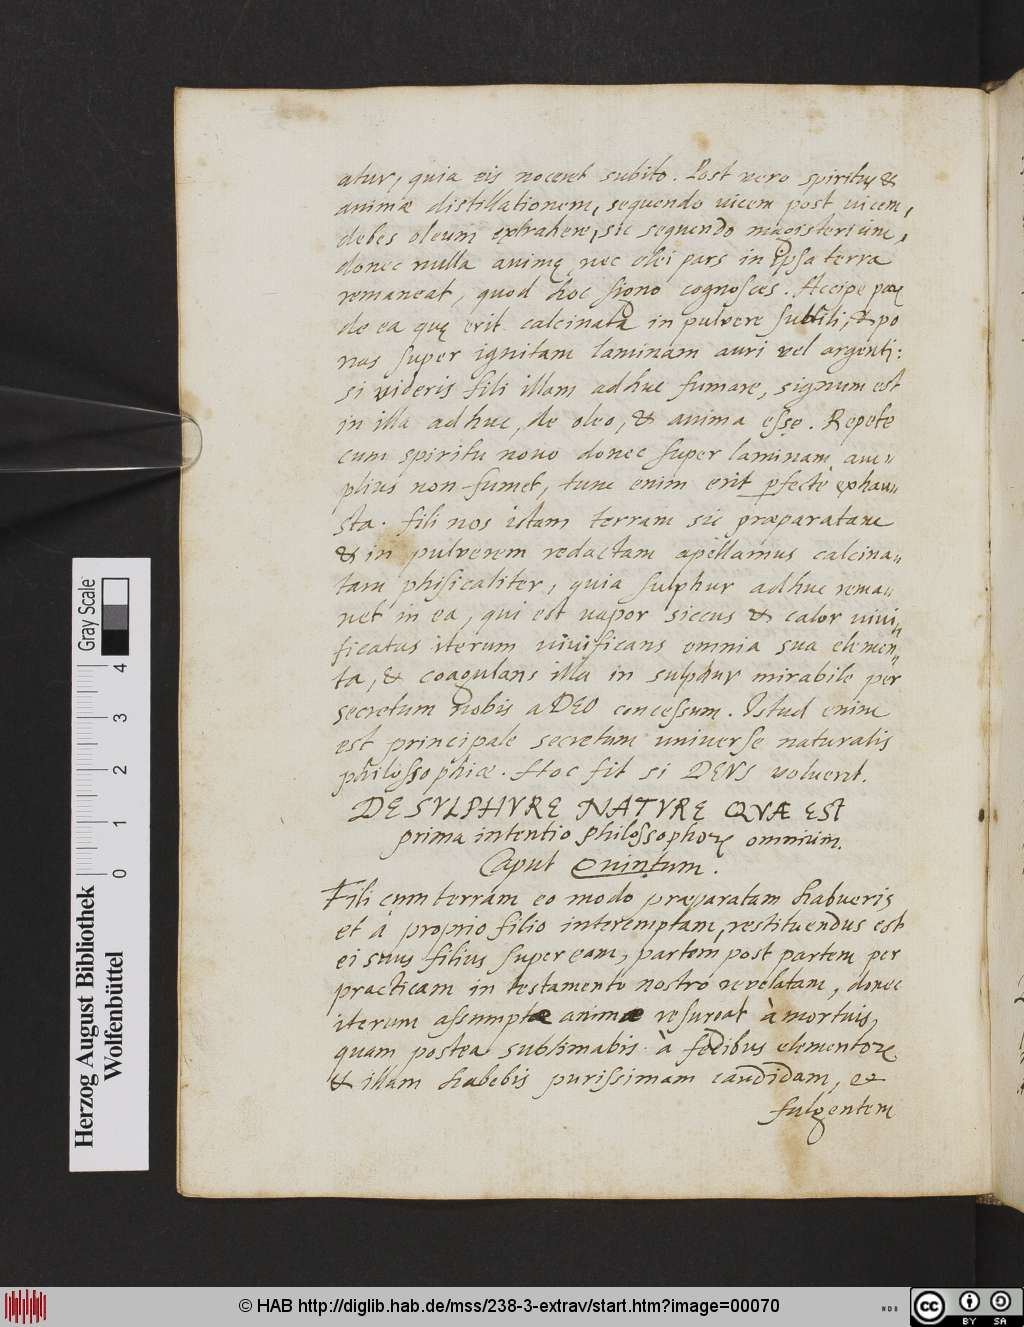 atur, quia eis noceret subito. Post vero spiritus &
animæ distillationem, sequendo vicem post vicem,
debes oleum extrahere, sic sequendo magisterium,
donec nulla animę, nec olei pars in ipsa terra
remaneat, quod hoc signo cognosces. Accipe
de ea quę erit calcinata in pulvere subtili, & po
nas super ignitam laminam auri vel argenti:
si videris fili illam adhuc fumare, signum est
in illa adhuc, de oleo, & anima esse. Repete
cum spiritu novo donec super laminam am„
plius non fumet, tunc enim erit perfectè exhau„
sta. fili nos istam terram sic præparatam
& in pulverem redactam apellamus calcina„
tam phisicaliter, quia sulphur adhuc rema„
net in ea, qui est vapor siccus & calor vivi„
ficatus iterum vivificans omnia sua elemen„
ta, & coagulans illa in sulphur mirabile per
secretum nobis a DEO concessum. Istud enim
est principale secretum universe naturalis
philossophiæ. Hoc fit si DEVS voluerit.
DE SVLPHVRE NATVRE QVÆ EST
prima intentio philossophorum omnium.
Caput Quintum.
Fili cum terram eo modo præparatam habueris
et à proprio filio interemptam, restituendus est
ei suus filius super eam, partem post partem per
practicam in testamento nostro revelatam, donec
iterum assumptæ animæ resurgat à mortuis,
quam postea sublimabis à fecibus elementorum
& illam habebis purissimam candidam, &
fulgentem
Herzog August Bibliothek
Wolfenbüttel
0 1 2 3 4
Gray Scale
© HAB http://diglib.hab.de/mss/238-3-extrav/start.htm?image=00070
cc BY SA